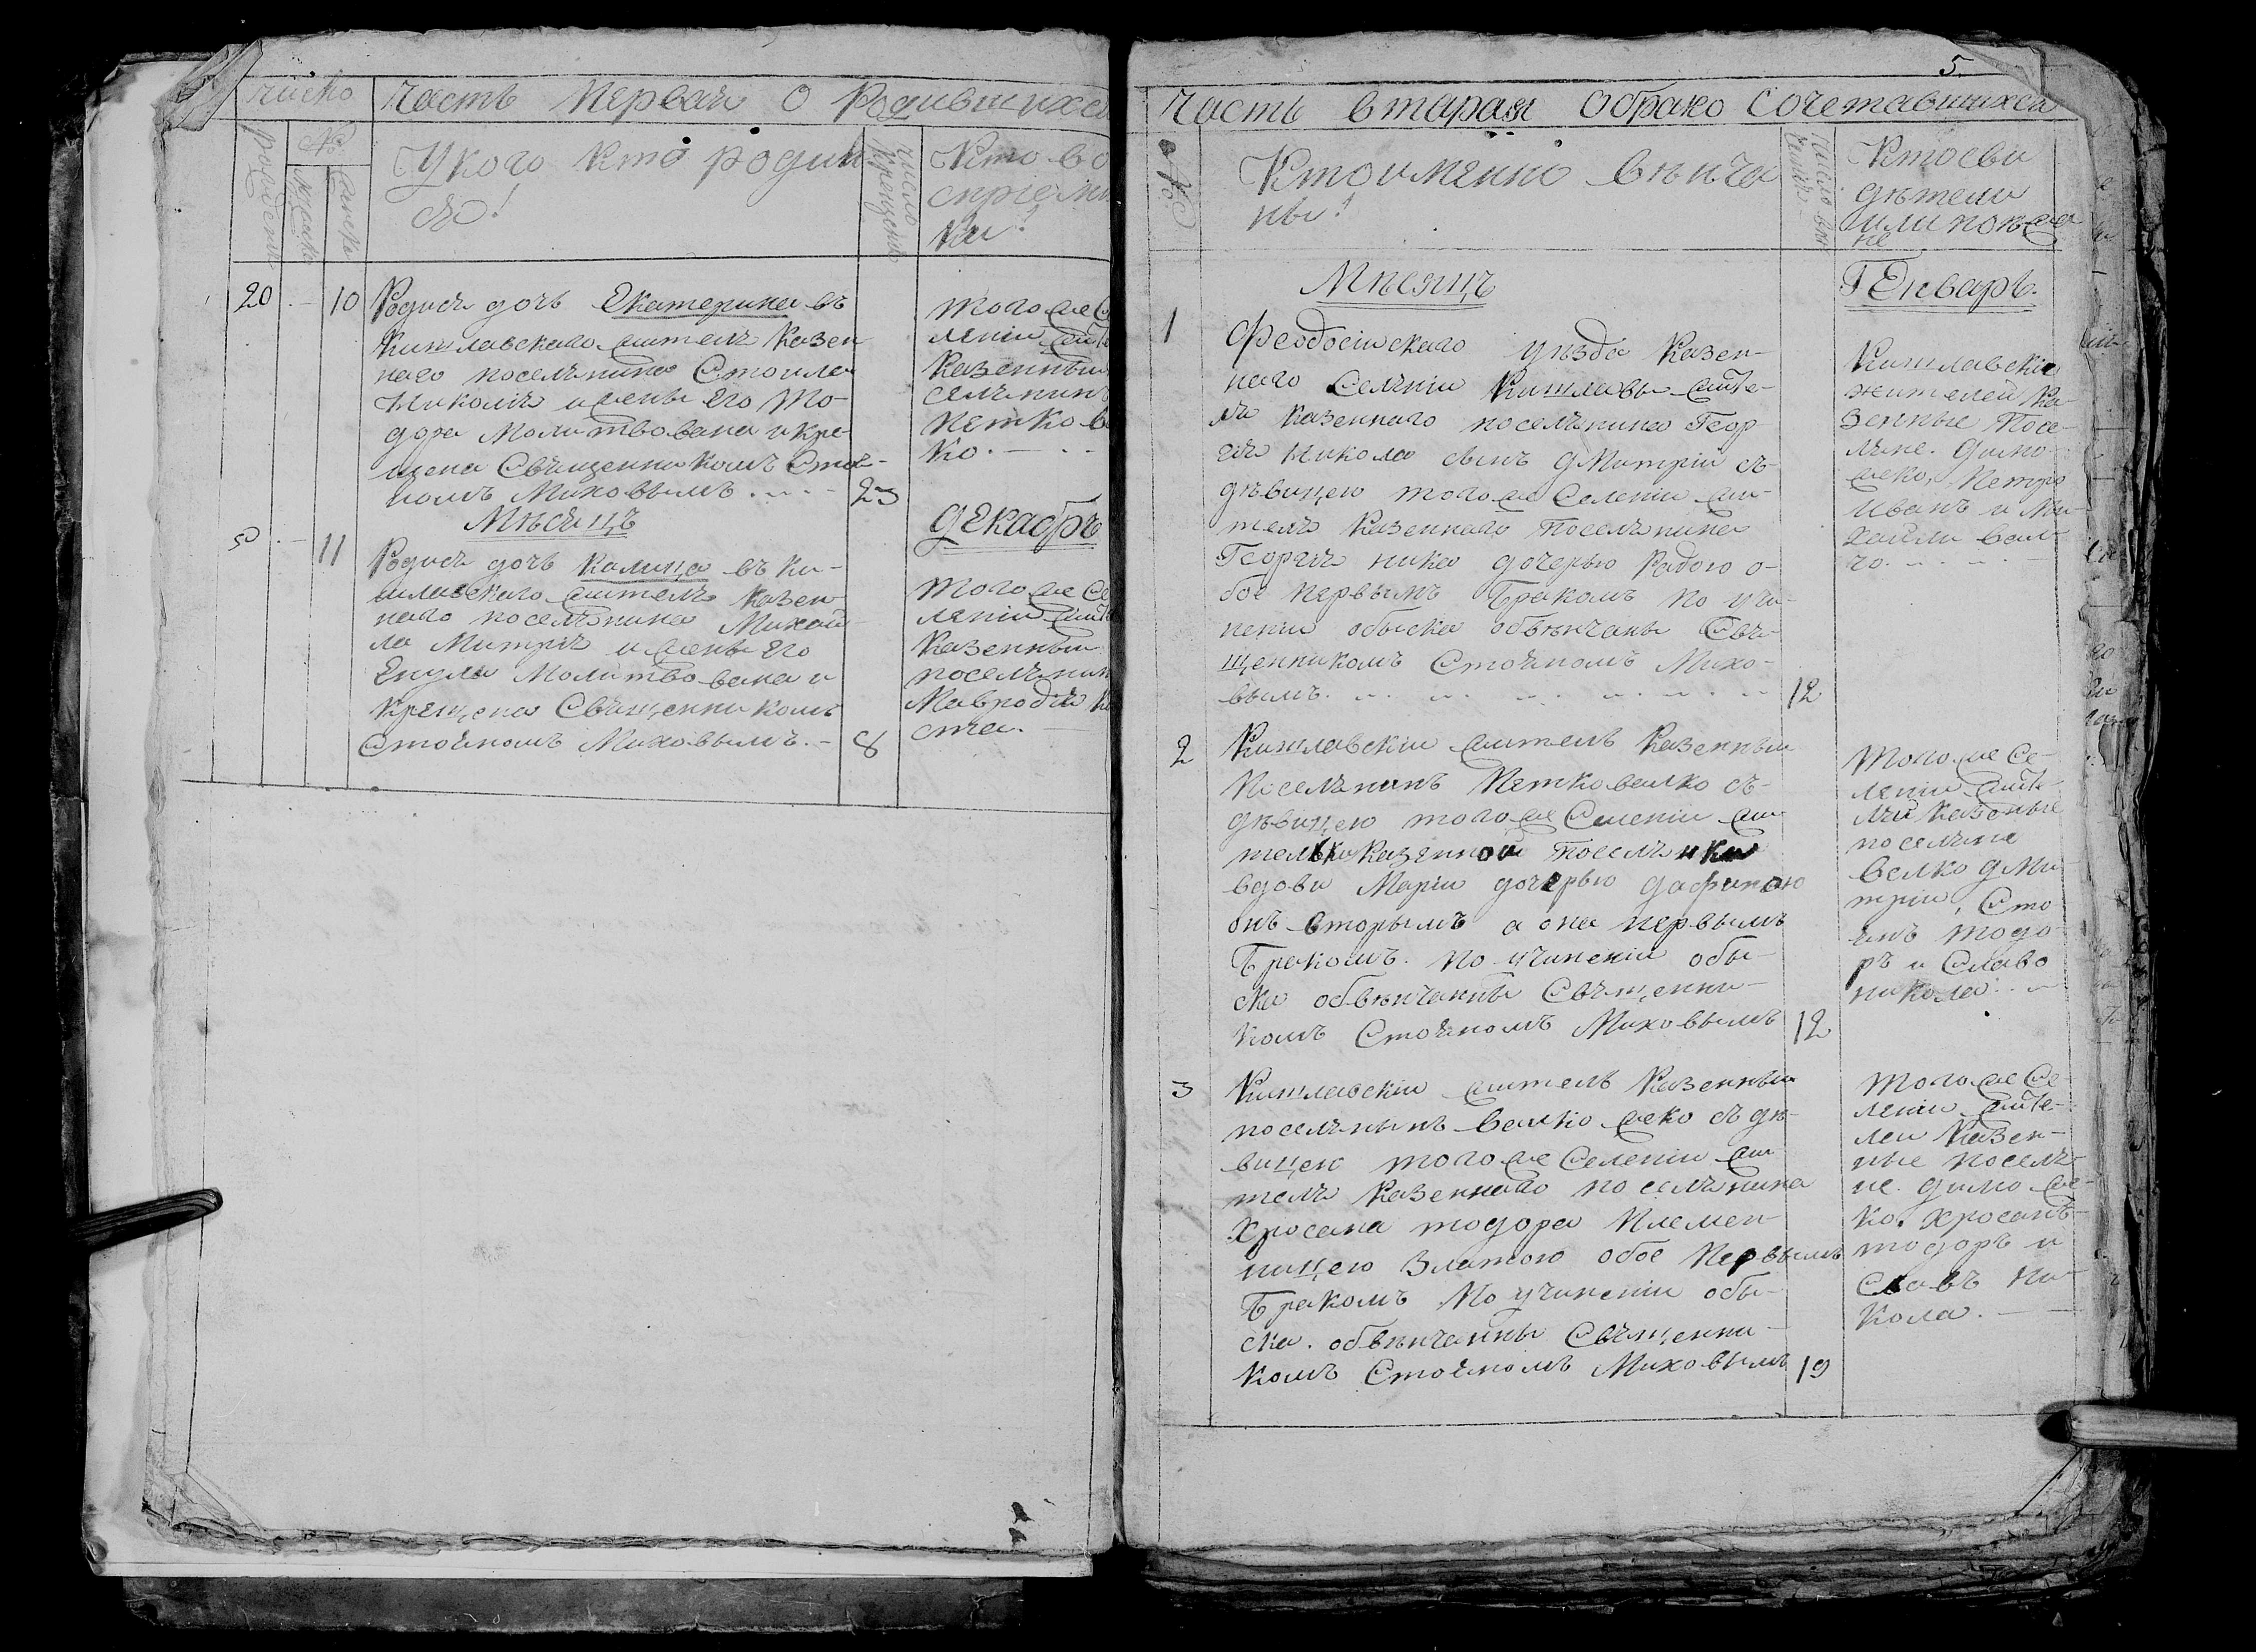 число
Часть первая о родившихся
рождения
№
Мужска
Женска
У кого кто родил
ся!
число крещения
Кто во
спріемни
ки!
20
10
Родися дочь Екатерина въ
Кишлавскаго жителя казен
наго поселянина Стоила
Николы и жены его То-
дора молитвована и кре-
щена Священникомъ Стоя-
номъ Миховымъ
23
того же се
леніи жите
казенный
селянинъ
Петко Ве
ко.
Мѣсяцъ
Декабрь
5
11
Родися дочь Калица въ Ки-
шлавскаго жителя казен
наго поселянина Михай
ла Митря и жены его
Енула молитвована и
крещена Священникомъ
Стояномъ Миховымъ.
8
того же се
леніи жите
казенный
поселянин
Мавродій К
ста.
5.
Часть вторая о брако сочетавшихся
№
Кто имянно вѣнча
ны!
число вѣн
Кто сви
дѣтели
или поѣзжа
не
Мѣсяцъ
Генварь.
1
Феодосійскаго уѣзда казен-
наго селеніи Кишлавы жите-
ля казеннаго поселянина Геор-
гія Никола сынъ Дмитрій съ
дѣвицею того же селеніи жи-
теля казеннаго поселянина
Георгія Ника дочерью Радою о-
бое первымъ бракомъ по учи-
неніи обыска обвѣнчаны Свя-
щенникомъ Стояномъ Михо-
вымъ.
12
Кишлавскіе
жителей ка-
зенные посе-
ляне. Димо
жеко, Петръ
Иванъ и Ми-
хаили Вел-
чо.
2
Кишлавскій житель казенный
поселянинъ Петко Велко съ
дѣвицею того же селеніи жи
тельки казенной поселянки
вдови Маріи дочерью Дафиною
онъ вторымъ а она первымъ
бракомъ. по учиненіи обы-
ска обвѣнчанны Священни-
комъ Стояномъ Миховымъ
12
того же се-
леніи жите-
ли казеные
поселяне
Велко Дми
трій, Сто
янъ Тодо
ръ и Славо
Никола
3
Кишлавскій житель казенный
поселянинъ Велико жеко съ дѣ-
вицею того же селеніи жи
теля казеннаго поселянина
Хросана Тодора племен-
ницею Златою обое первымъ
бракомъ по учиненіи обы-
ска. обвѣнчанны Священни-
комъ Стояномъ Миховымъ
19
того же се-
леніи жите-
лей казен-
ные поселя-
не. Димо же-
ко. Хросанъ
Тодоръ и
Славъ Ни-
кола.